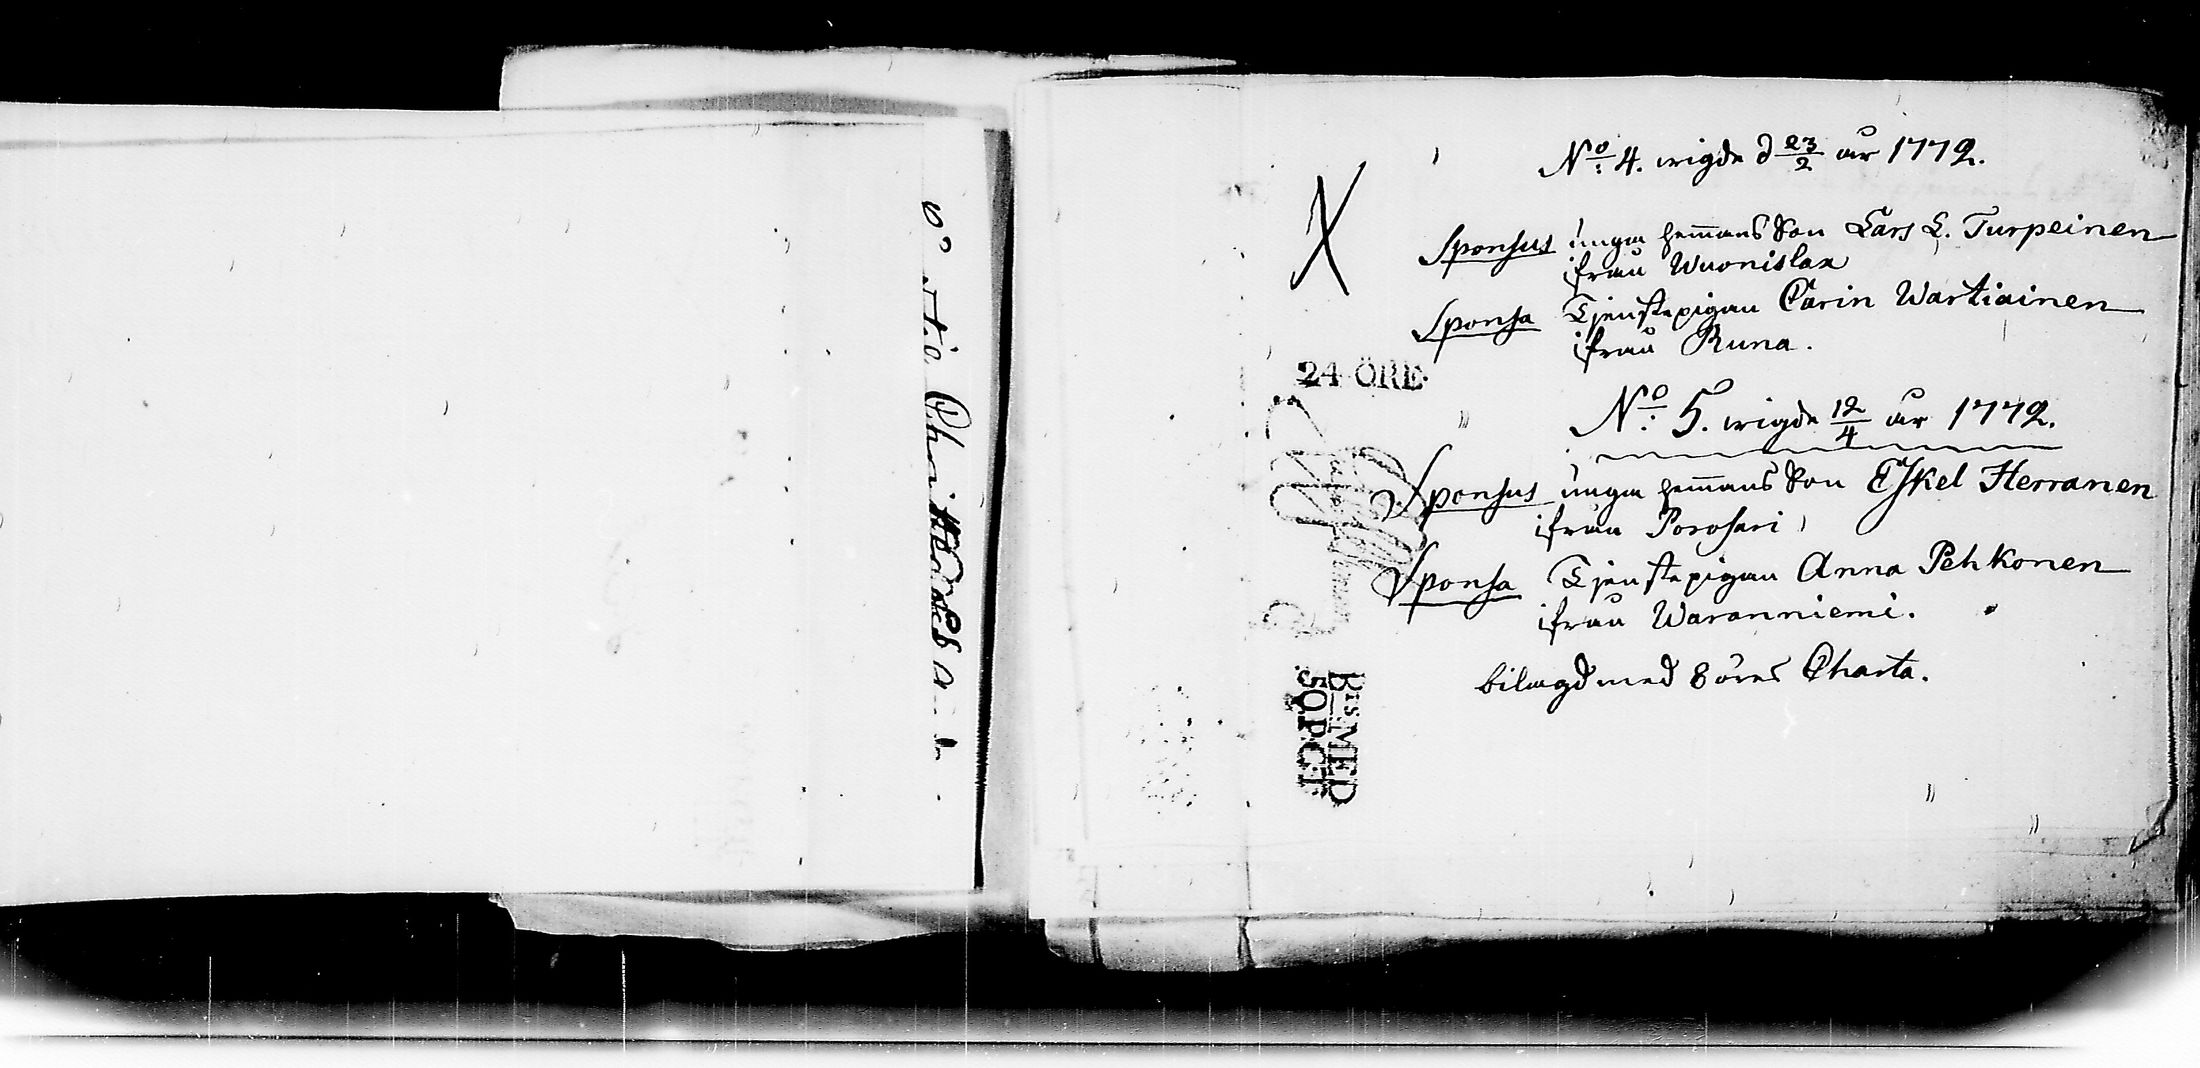 No: 4. wigde d 23/2 år 1772.
Sponsus unga hem̄ans Son Lars L. Turpeinen
ifrån Wuonislax
Sponsa Tjenstepigan Carin Wartiainen
ifrån Runa.
24 ÖRE.
No: 5. wigde 12/4 år 1772.
Sponsus unga hem̄ans Son Eskel Herranen
ifrån Porosari
Sponsa Tjenstepigan Anna Pehkonen
ifrån Waranniemi.
bilagd med 8 öres Charta.